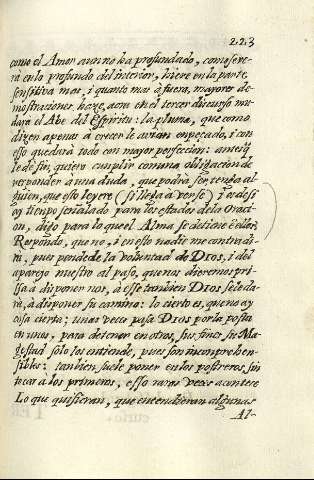 223
como el Amor aun no ha profundado, como se ve-
rà en lo profundo del interior, hiere en la parte
sensitiva mas, i quanto mas à fuera, mayores de-
mostraciones haze, aora en el tercer discurso mu-
darà el Ave del Espiritu: la pluma, que como
dizen apenas à crecer le avian enpeçado, i con
esso quedarà todo con mayor perfeccion: antes
de de sir, quiero cunplir comuna obligacion de
responder à una duda, que podrà ser, tenga al-
guien, que esto leyere (si llega à verse) i es de si
ay tienpo señalado para los estados de la Oraci-
on, digo para lo que el Alma se detiene en ellos,
Respondo, que no, i en esto nadie me contradi-
rà, pues pende de la voluntad de DIOS, i del
aparejo nuestro al paso, que nos dieremos pri-
sa à disponer nos, à esse tanbien DIOS se la da-
rà, à disponer su camino: lo cierto es, que no ay
cosa cierta; unas veces pasa DIOS por la posta
en unos, para detener en otros, sus fines su Ma-
gestad solo los entiende, pues son inconprehen-
sibles: tanbien suele poner en los postreros, sin
tocar à los primeros, esso raras veces acontece
Lo que quisieran, que entendieran algunas
Al-